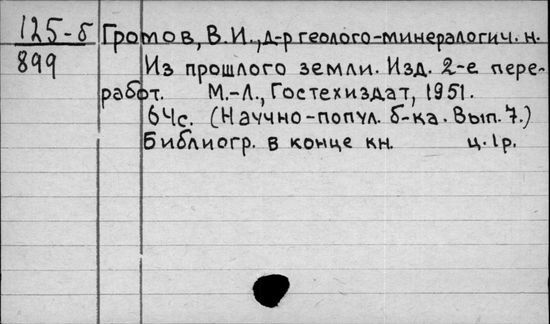 125-б Громов, В.И., д-р геолого-минералогич. н.
899 Из прошлого земли. Изд. 2-е пере-
работ. М.-Л., Гостехиздат, 1951.
64с. (Научно-попул. б-ка. Вып. 7.)
Библиогр. в конце кн. ц. 1р.